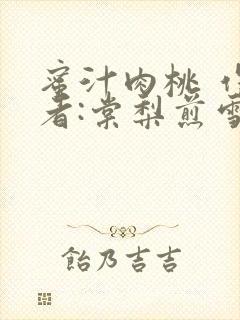 蜜汁肉桃 作
者:棠梨煎雪
飴乃吉吉